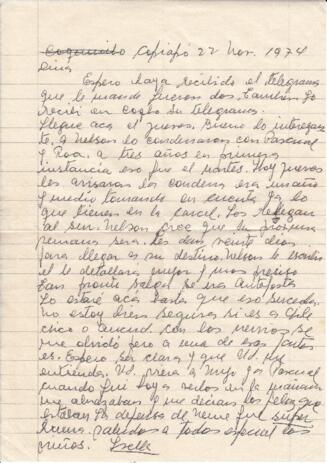 Coquimbo Copiapó 22 Nov. 1974
Espero haya recibido el telegrama
que le mande fueron dos. Tambien yo
recibi en Coqbo su telegrama.
Llegue acá el jueves. Bueno lo interesan
te, a Nelson lo condenaron con Pascual
y Roa. a tres años en primera
instancia eso fue el martes. Hoy jueves
les avisaron los condena era un año
y medio tomando en cuenta ya lo
que tienen en la carcel. Los relegan
al sur. Nelson cree que la próxima
semana será. les dan veinte dias
para llegar a su destino. Nelson le escribió
el le detallara mejor y mas preciso
Tan pronto salga se irá Antofgta
Yo estaré acá hasta que eso suceda.
no estoy bien segura si es a Chile
chico o Ancud. con los nervios se
me olvidó pero a una de esas partes
es. Espero ser clara y que Ud. me
entienda. Ud. viera a Hugo y a Pascual
cuando fui hoy a verlos en la mañana
me abrazaban y me decian lo feliz que
estaban La defensa de fue super
buena. saludos a todos especial los
niños.